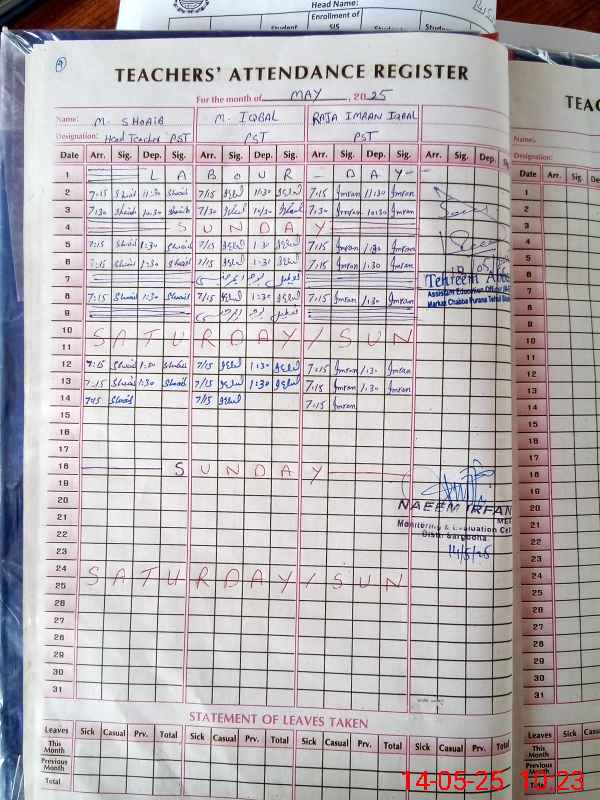 Head Name:
Enrollment of
SIS
Student
Student
Student
TEACHERS' ATTENDANCE REGISTER
For the month of MAY, 2025
Name: M. SHOAIB M. IQBAL RAJA IMRAN IQBAL
Designation: Head Teacher PST PST PST
Date Arr. Sig. Dep. Sig. Arr. Sig. Dep. Sig. Arr. Sig. Dep. Sig. Arr. Sig. Dep.
1 LABOUR - DAY -
2 7:15 Shoaib 11:30 Shoaib 7/15 11/30 7:15 Imran 11:30 Imran
3 7:30 Shoaib 10:30 Shoaib 7/30 10/30 7:30 Imran 10:30 Imran
4 SUNDAY
5 7:15 Shoaib 1:30 Shoaib 7/15 1:30 7:15 Imran 1:30 Imran
6 7:15 Shoaib 1:30 Shoaib 7/15 1:30 7:15 Imran 1:30 Imran
7
8 7:15 Shoaib 1:30 Shoaib 7/15 1:30 7:15 Imran 1:30 Imran
9
10 SATURDAY/SUN
11
12 7:15 Shoaib 1:30 Shoaib 7/15 1:30 7:15 Imran 1:30 Imran
13 7:15 Shoaib 1:30 Shoaib 7/15 1:30 7:15 Imran 1:30 Imran
14 7:15 Shoaib 7/15 7:15 Imran
15
16
17
18 SUNDAY
19
20
21
22
23
24 SATURDAY/SUN
25
26
27
28
29
30
31
Tehreem
Assistant Education Officer
Market Chabba Purana
NAEEM IRFAN
Monitoring & Evaluation Cell
Distt: Sargodha
14/5/25
STATEMENT OF LEAVES TAKEN
Leaves Sick Casual Prv. Total Sick Casual Prv. Total Sick Casual Prv. Total Sick Casual Prv.
This Month
Previous Month
Total
TEAC
Name:
Designation:
Date Arr. Sig. Dep.
1
2
3
4
5
6
7
8
9
10
11
12
13
14
15
16
17
18
19
20
21
22
23
24
25
26
27
28
29
30
31
Leaves Sick Cas
This Month
Previous Month
14-05-25 10:23